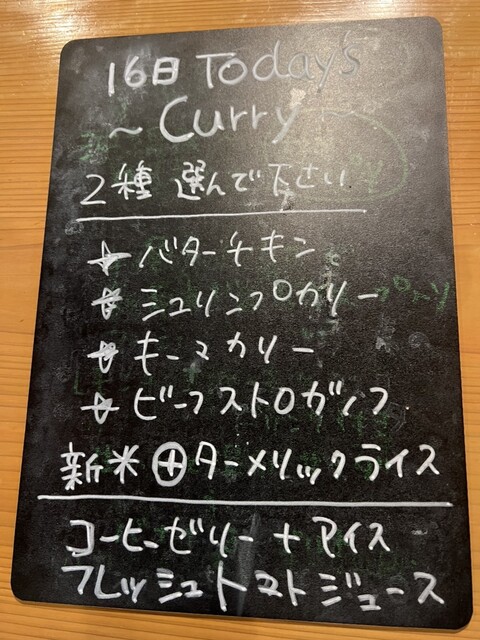 16日 Today's
~ Curry ~
2種 選んで下さい
☆ バターチキン
☆ ミュリンプカリー
☆ キーマカリー
☆ ビーフストロガノフ
新米⊕ターメリックライス
コーヒーゼリー + アイス
フレッシュトマトジュース